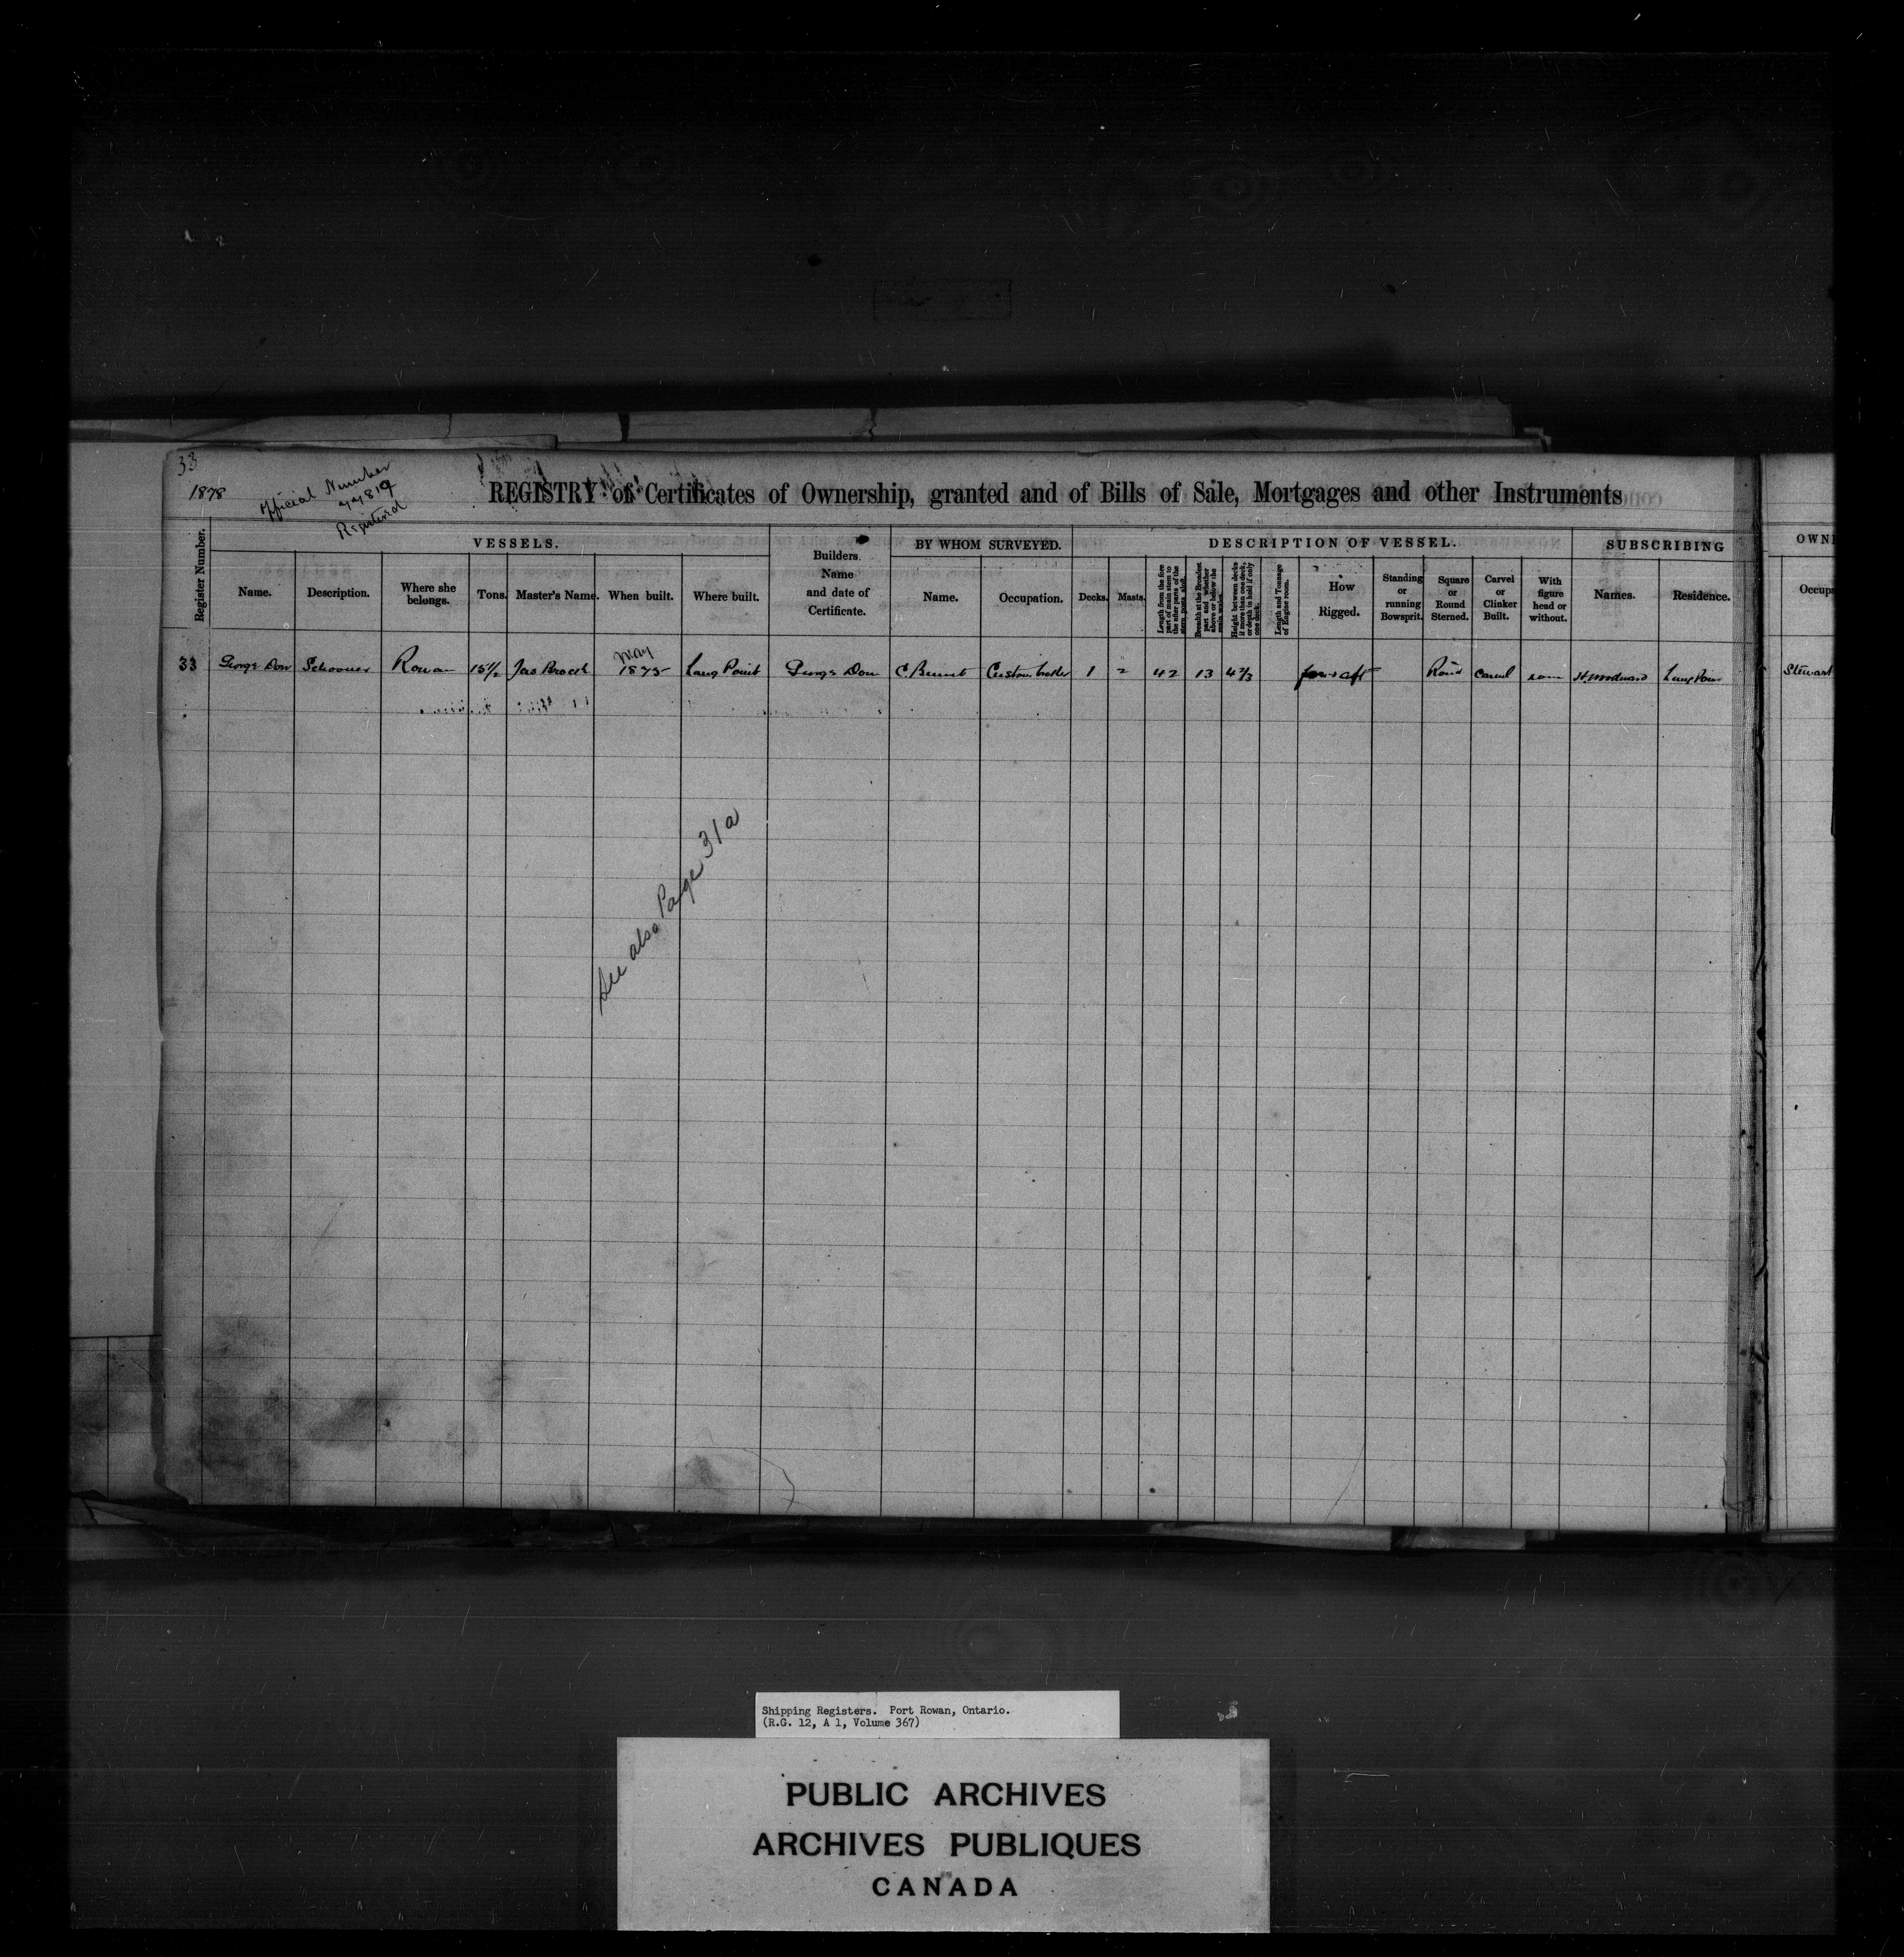 33
1878
Official Number
77819
Registered
REGISTRY of Certificates of Ownership, granted and of Bills of Sale, Mortgages and other Instruments
Register Number.
VESSELS.
Name.
Description.
Where she belongs.
Tons.
Master's Name.
When built.
Where built.
Builders Name and date of Certificate.
BY WHOM SURVEYED.
Name.
Occupation.
DESCRIPTION OF VESSEL.
Decks.
Masts.
Length from the fore part of main stem to the after part of the stern post aloft.
Breadth at the Broadest part and whether above or below the main wales.
Height between decks if more than one deck, or depth in hold if only one deck.
Length and Tonnage of Engine room.
How Rigged.
Standing or running Bowsprit.
Square or Round Sterned.
Carvel or Clinker Built.
With figure head or without.
SUBSCRIBING
Names.
Residence.
OWN
Occup
33 George Dow Schooner Rowan 15 1/2 Jas May 1875 Long Point George Dow C 1 2 42 13 4 2/3 for & aft Round Carvel H. Woodward Stewart
See also Page 31a
Shipping Registers. Port Rowan, Ontario.
(R.G. 12, A 1, Volume 367)
PUBLIC ARCHIVES
ARCHIVES PUBLIQUES
CANADA